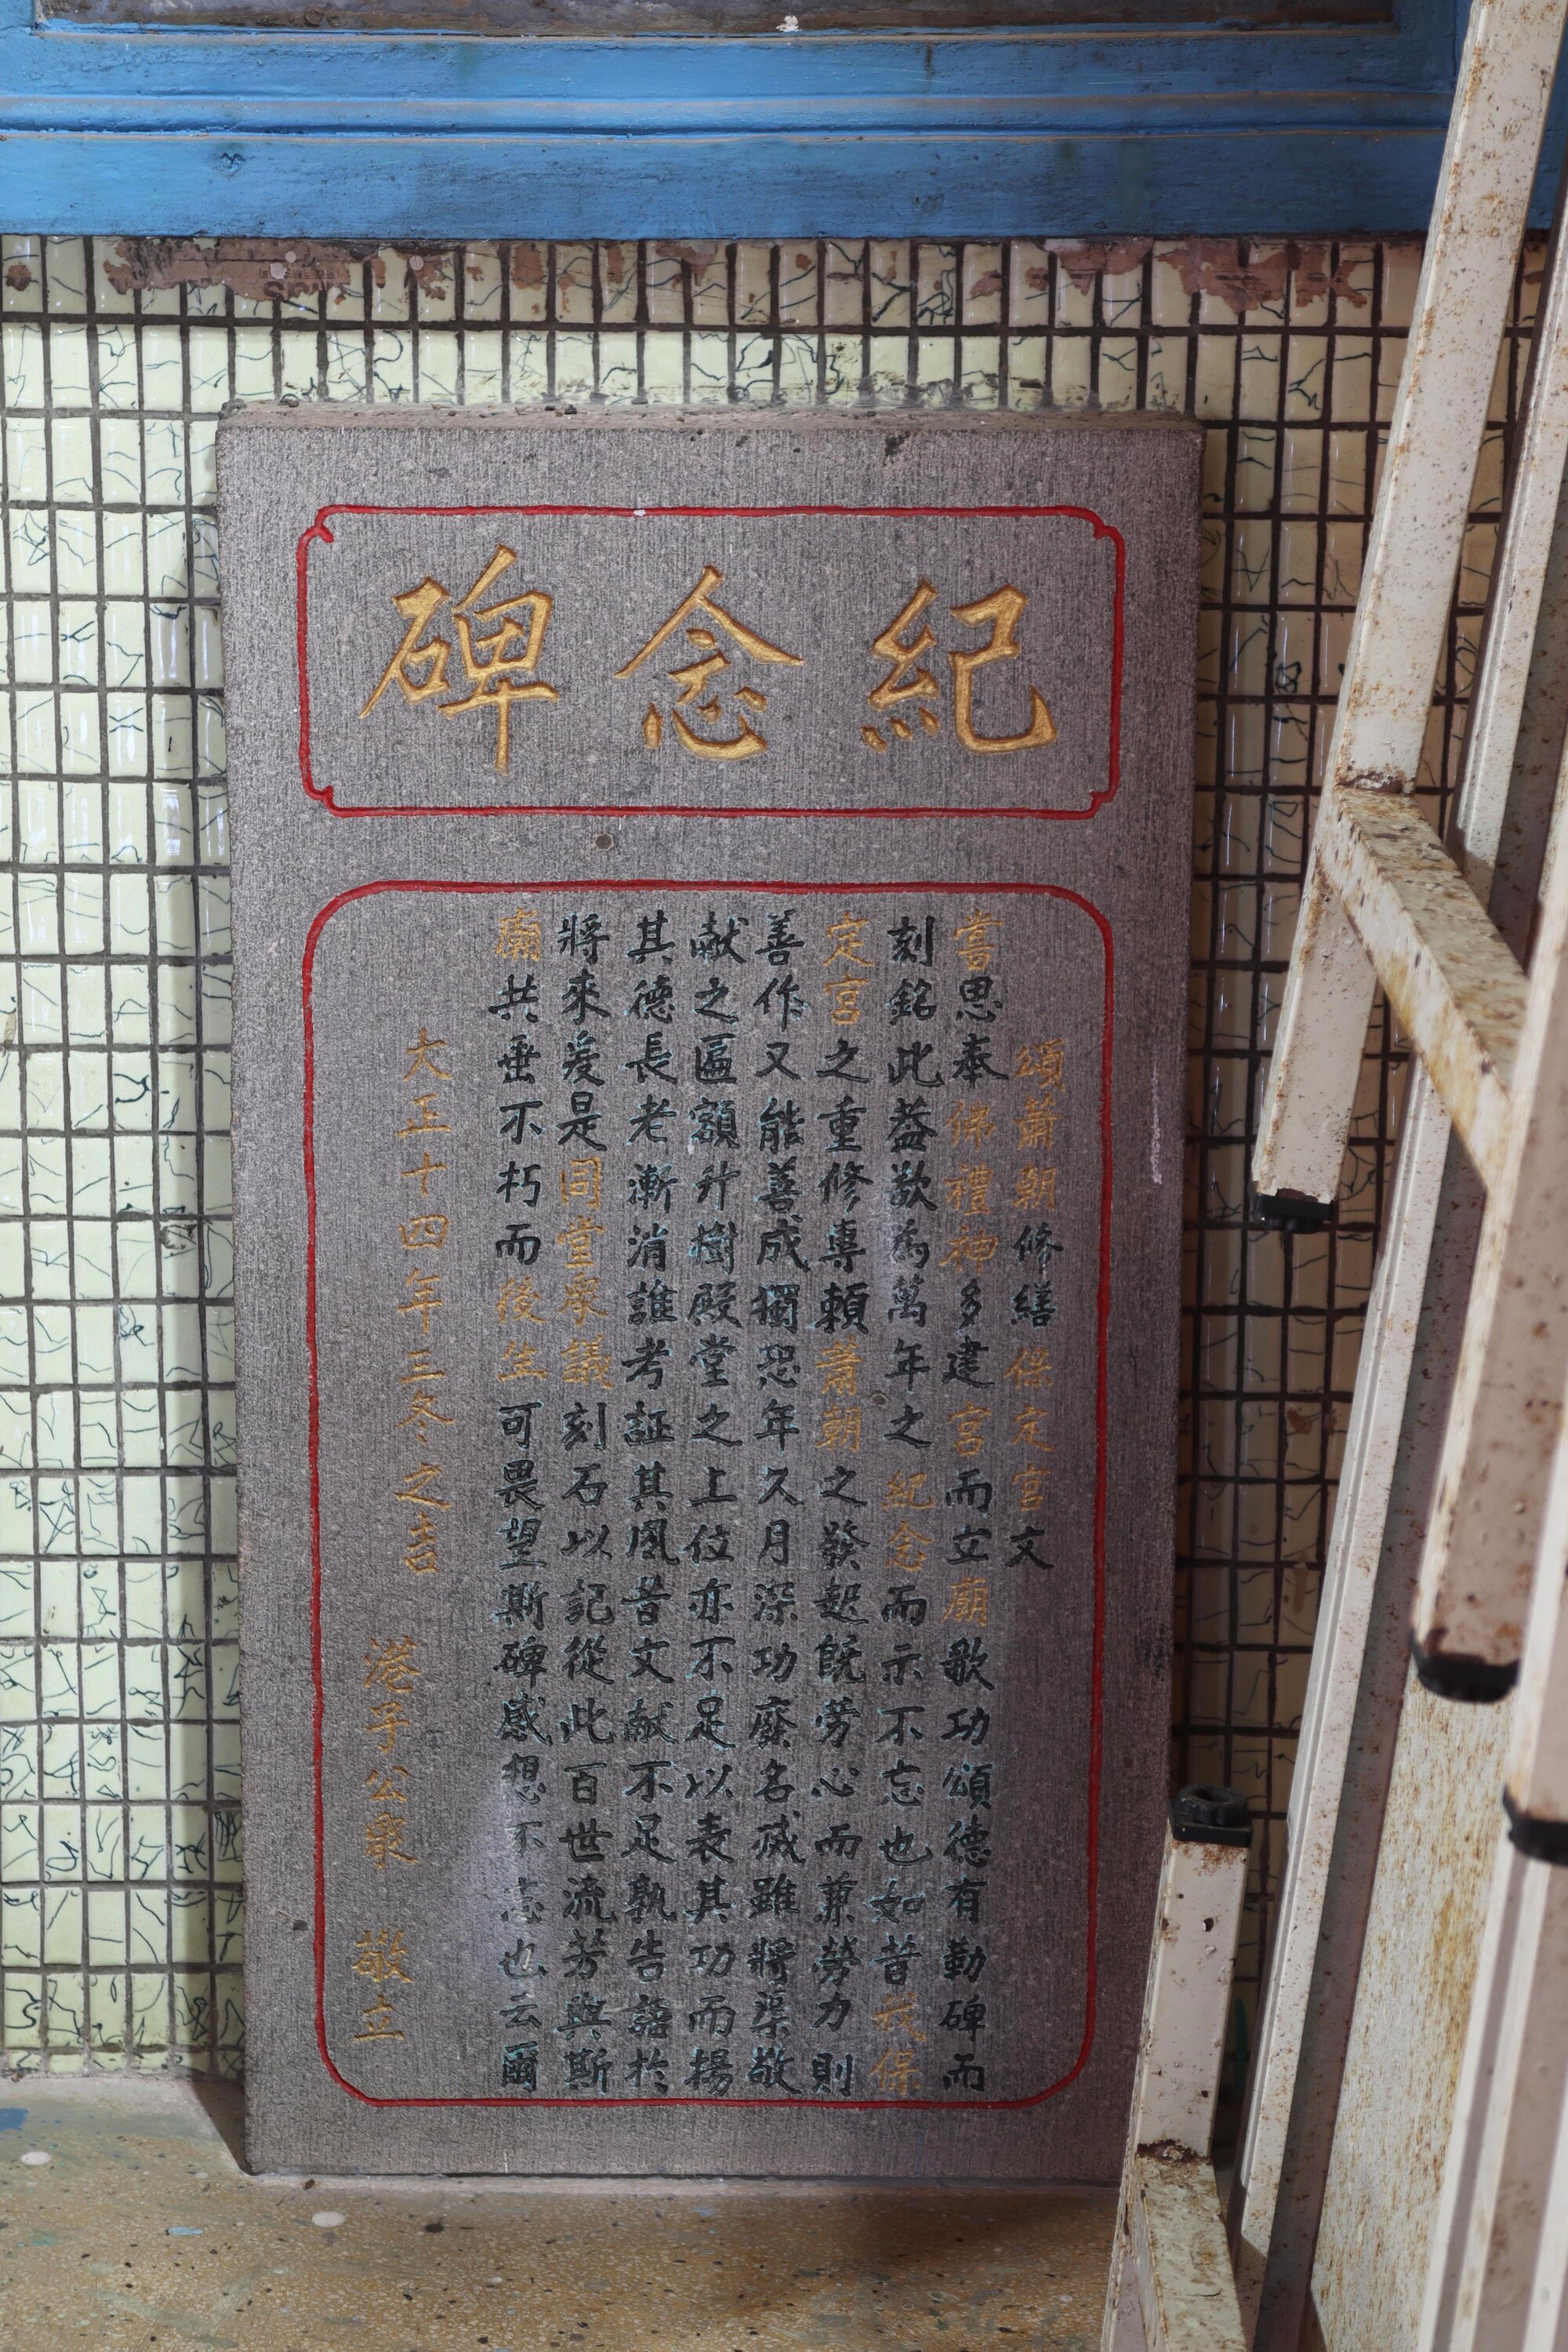 紀念碑
頌蕭朝修繕保定宮文
嘗思奉佛禮神多建宮而立廟歌功頌德有勒碑而
刻銘此蓋欲為萬年之紀念而示不忘也如昔我保
定宮之重修專賴蕭朝之發起既劳心而兼勞力則
善作又能善成獨恐年久月深功廢名滅雖將渠敬
献之匾額升樹殿堂之上位亦不足以表其功而揚
其德長老漸消誰考証其風昔文献不足孰告語於
將來爰是同堂眾議刻石以記從此百世流芳與斯
廟共垂不朽而後生可畏望斯碑感想不忘也云爾
大正十四年三冬之吉
港子公眾 敬立